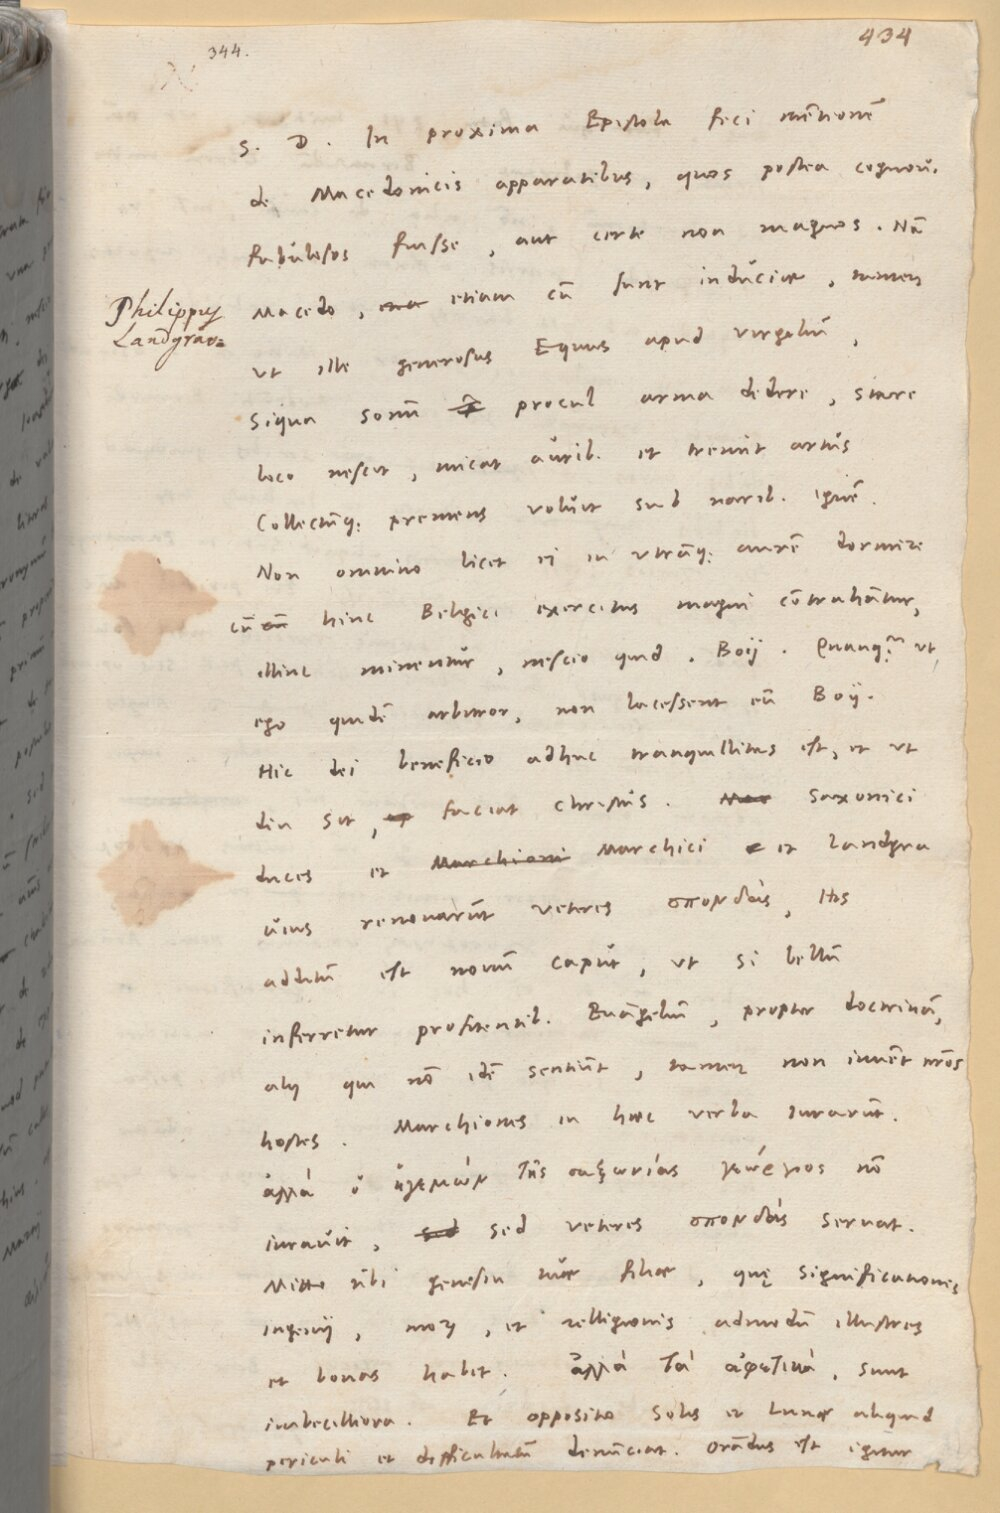 344.
434
S. D. In proxima Epistola feci mētionē
de Macedonicis apparatibus, quos postea cognoui.
fabulosos fuisse, aut certe non magnos. Nā
Philippus
Landgrav:
Macedo, etiam cū sunt induciae, tamen
vt ille generosus Equus apud virgiliū,
Siqua sonū procul arma dedere, stare
loco nescit, micat aurib. et tremit artus
Collectūq; premens voluit sub narib. ignē.
Non omnino licet ei in vtrāq; aurē dormire
cū hinc Belgici exercitus magni cōtrahātur,
illinc minentur, nescio quid. Boij. Quanq̄ vt
ego quidē arbitror, non lacessent eū Boij.
Hic dei beneficio adhuc tranquillitas est, et vt
diu sit, faciat Christus. Saxonici
duces et Marchici et Landgra
uius renouarūt veteres σπονδάς, His
additū est nouū caput, vt si bellū
inferretur profitentib. Euāgeliū, propter doctrinā,
alij qui nō idē sentiūt, tamen non iuuēt nr̄os
hostes. Marchiones in haec verba iurarūt.
ἀλλὰ ὁ ἡγεμὼν τῆς σαξωνίας γεώργιος nō
iurauit, sed veteres σπονδὰς seruat.
Mitto tibi genesin tuae filiae, quę significationes
ingenij, morū, et relligionis admodū illustres
et bonas habet. ἀλλὰ τὰ ἀφετικὰ, sunt
imbecilliora. Et oppositio Solis et Lunae aliquid
periculi et difficultatū denunciat. Orādus est igitur